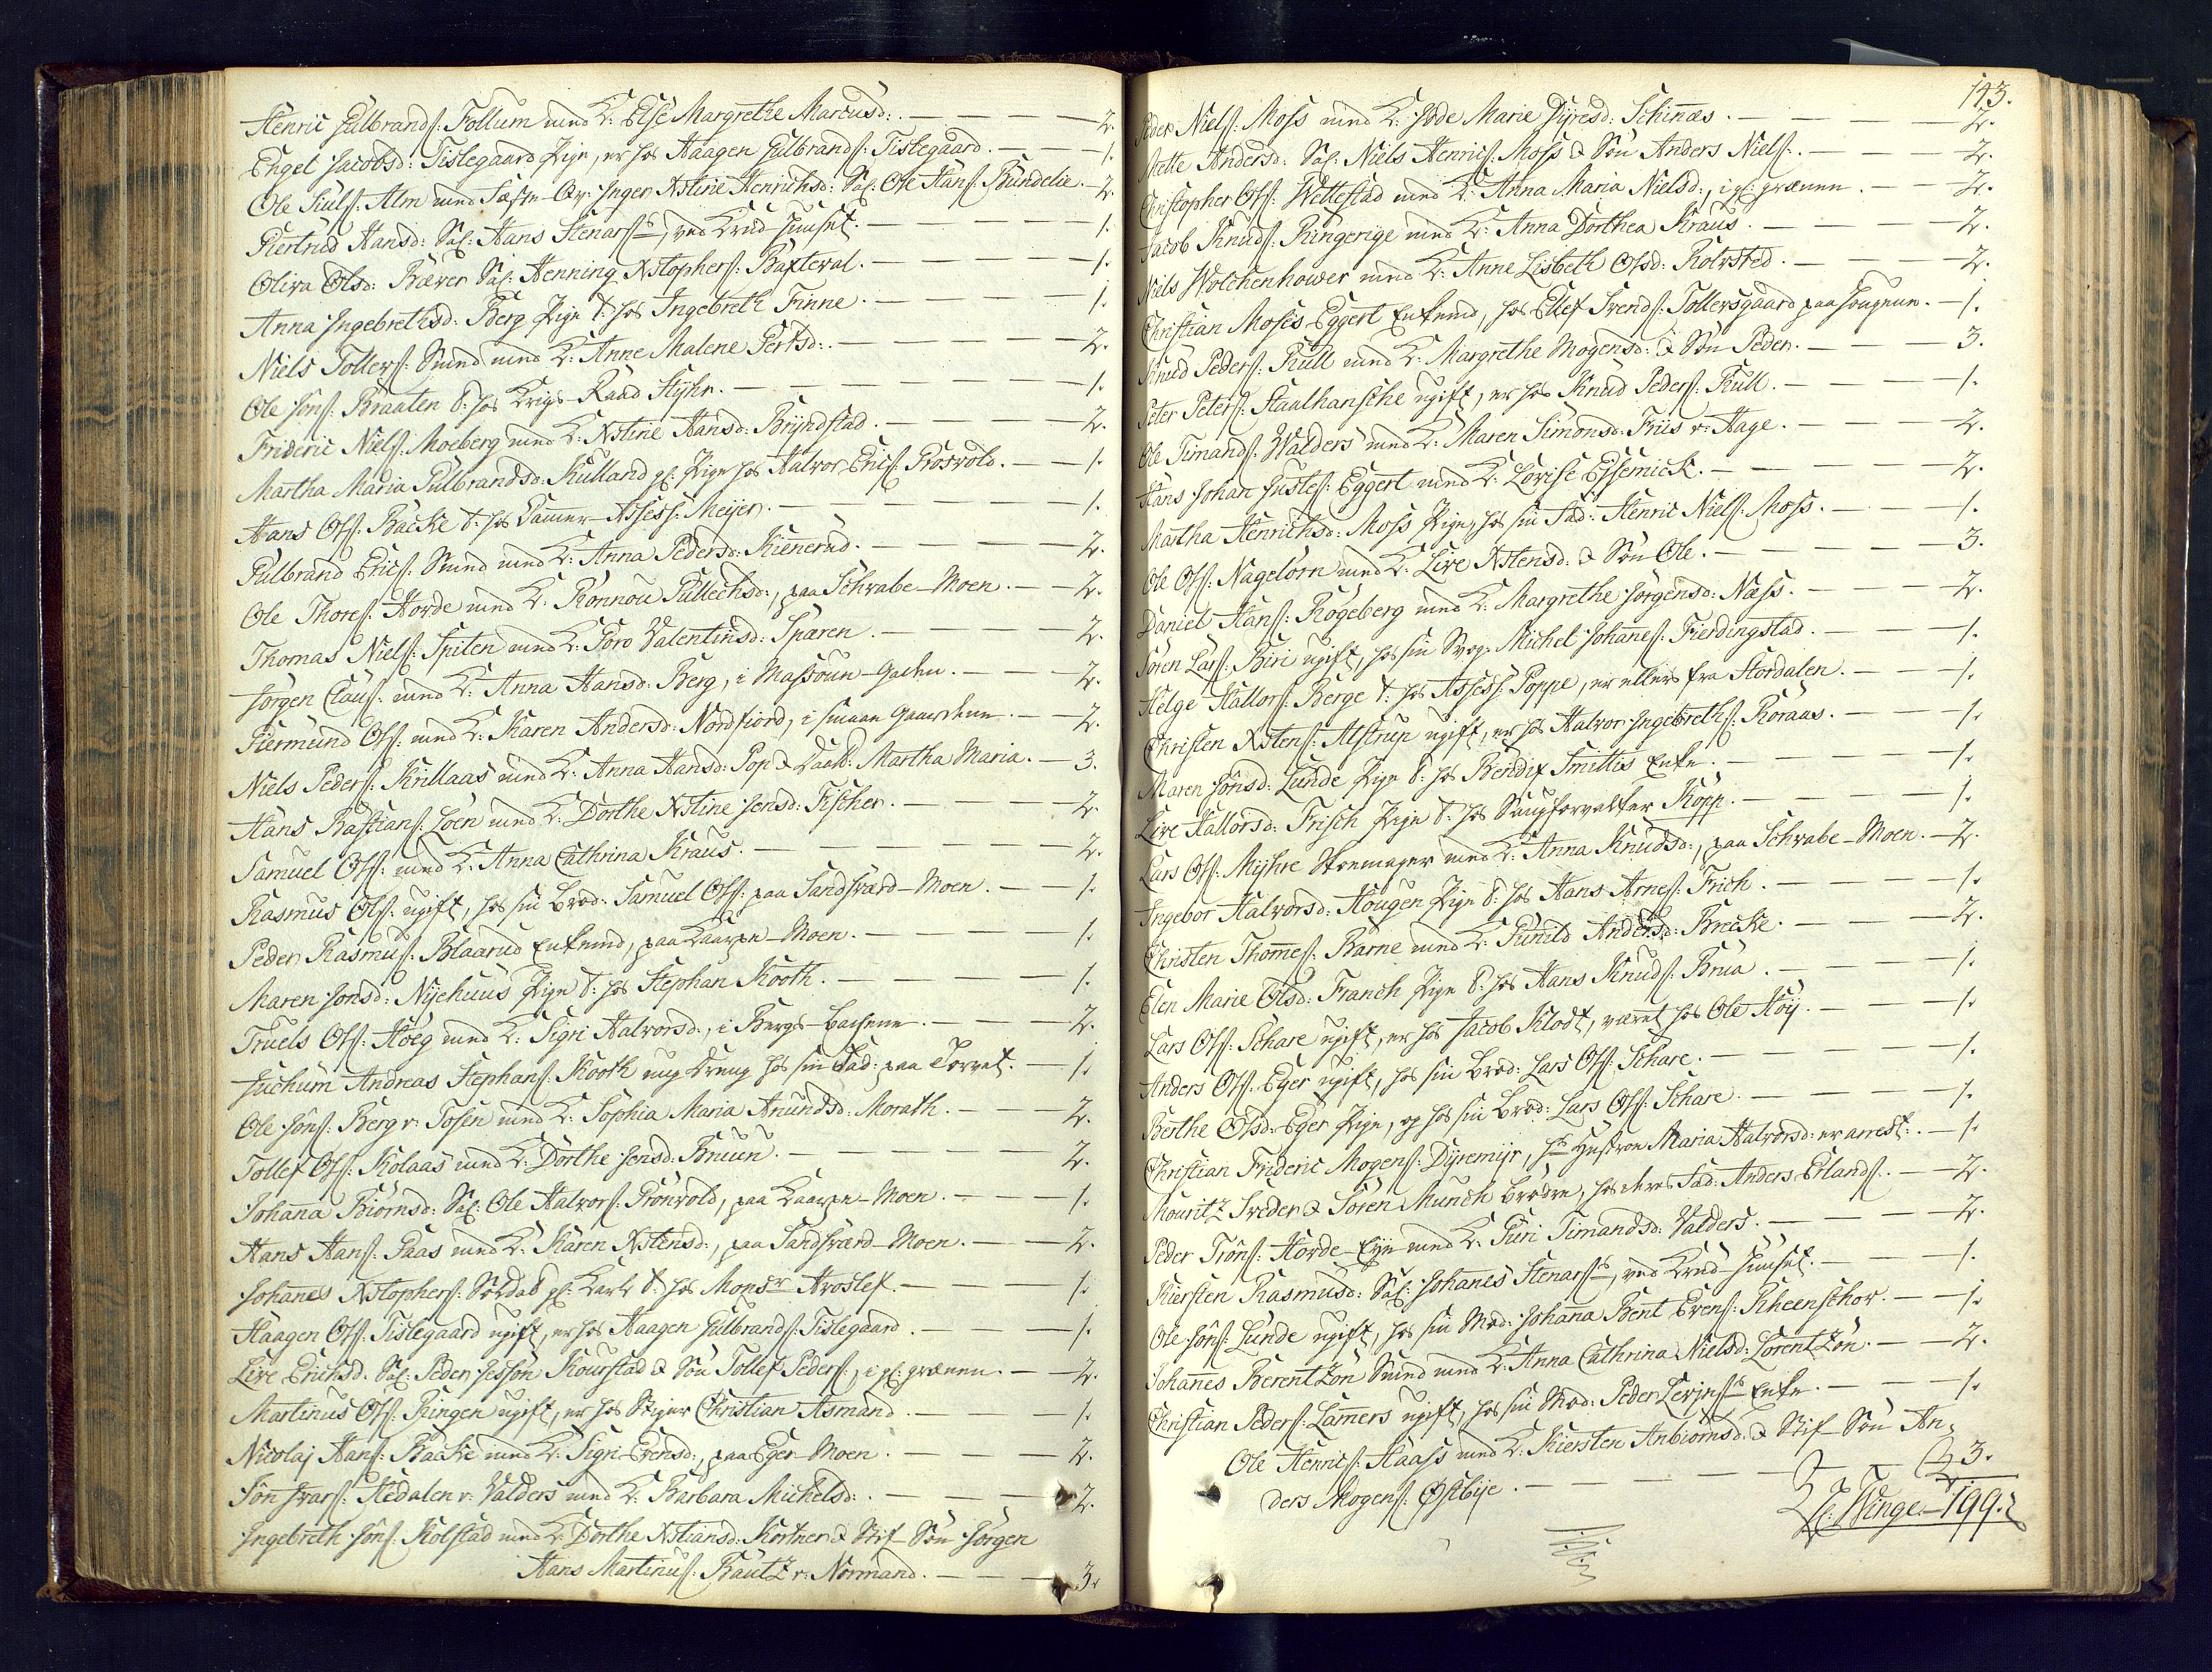 Henric Gulbrands: Follum med K: Else Margrethe Marcusd: — 2.
Engel Jacobsd: Tislegaard Pige, er hos Haagen Gulbrands: Tislegaard. — 1.
Ole Siuls: Alm med Fæste-Qv: Inger Xstine Henrichsd: Sal: Ole Hans: Bundelie. — 2.
Giertrud Hansd: Sal: Hans Stenars:, ved Krud-Huuset. — 1.
Oliva Olsd: Bæver Sal: Henning Xstophers: Baxteval. — 1.
Anna Ingebrethsd: Berg Pige t: hos Ingebreth Finne. — 1.
Niels Tollers: Smed med K: Anne Malene Pertsd: — 2.
Ole Jôns: Braaten t: hos Krigs-Raad Styhr. — 1.
Frideric Niels: Moeberg med K: Xstine Hansd: Bryndstad. — 2.
Martha Maria Gulbrandsd: Kulland gl: Pige hos Halvor Erics: Grosvold. — 1.
Hans Ols: Backe t: hos Kamer-Assess: Meyer. — 1.
Gulbrand Erics: Smed med K: Anna Pedersd: Kiennerud. — 2.
Ole Thores: Horde med K: Rönnou Gullechsd:, paa Schvabe-Moen. — 2.
Thomas Niels: Spiten med K: Goro Valentinsd: Sparen. — 2.
Jörgen Claus: med K: Anna Hansd: Berg, i Massoun-Gaden. — 2.
Giermund Ols: med K: Karen Andersd: Nordfiord, i smaae Gaarderne. — 2.
Niels Peders: Krillaas med K: Anna Hansd: Pop & Datt: Martha Maria. — 3.
Hans Bastians: Loen med K: Dorthe Xstine Jensd: Fischer. — 2.
Samuel Ols: med K: Anna Cathrina Kraus. — 2.
Rasmus Ols: ugift, hos sin Brod: Samuel Ols: paa Sandsværd-Moen. — 1.
Peder Rasmus: Blaarud Enkemd, paa Laagens-Moen. — 1.
Maren Jonsd: Nyehuus Pige t: hos Stephan Kooth. — 1.
Truels Ols: Höeg med K: Sigri Halvorsd:, i Bergs-Bachene. — 2.
Juchum Andreas Stephans: Kooth ung Dreng hos sin Fad: paa Torvet. — 1.
Ole Jôns: Berg v: Tosen med K: Sophia Maria Anundsd: Morath. — 2.
Tollef Ols: Kolaas med K: Dorthe Jensd: Bruun. — 2.
Johanna Biörnsd: Sal: Ole Halvors: Grönvold, paa Laagens-Moen. — 1.
Hans Hans: Gaas med K: Karen Xstensd:, paa Sandsværd-Moen. — 2.
Johanes Xstophers: Soldat gl: Karl t: hos Monsr Avoslef. — 1.
Haagen Ols: Tislegaard ugift, er hos Haagen Gulbrands: Tislegaard. — 1.
Live Erichsd: Sal: Peder Jesson Kourstad & Sön Tollef Peders:, i gl: grænnen. — 2.
Martinus Ols: Ringen ugift, er hos Stiger Christian Asmand. — 1.
Nicolaj Hans: Backe med K: Sigri Evensd:, paa Eger-Moen. — 2.
Jôn Ivars: Hedalen v: Valders med K: Barbara Michelsd: — 2.
Ingebreth Jôns: Kolstad med K: Dorthe Xstiansd: Kortner & Stif-Sön Jörgen
Hans Martinus: Bautz v: Normand. — 3.
143.
Peder Niels: Moss med K: Göde Marie Dyresd: Schinæs. — 2.
Mette Andersd: Sal: Niels Henrics: Moss & Sön Anders Niels: — 2.
Christopher Ols: Wettestad med K: Anna Maria Nielsd:, i gl: grænnen. — 2.
Jacob Knuds: Ringerige med K: Anna Dorthea Kraus. — 2.
Niels Wolchenhower med K: Anne Lisbeth Olsd: Rolvsted. — 2.
Christian Moses Eggert Enkemd, hos Ellef Svends: Tollersgaard paa Hougene. — 1.
Knud Peders: Kull med K: Margrethe Mogensd: & Sön Peder. — 3.
Peter Peters: Staalhansche ugift, er hos Knud Peders: Kull. — 1.
Ole Timands: Walders med K: Maren Simonsd: Friis v: Hage. — 2.
Hans Johan Justes: Eggert med K: Lovise Eysemick. — 2.
Martha Henrichsd: Moss Pige, hos sin Fad: Henric Niels: Moss. — 1.
Ole Ols: Nagelörn med K: Live Xstensd: & Sön Ole. — 3.
Daniel Hans: Rögeberg med K: Margrethe Jörgensd: Næss. — 2.
Sören Lars: Biri ugift, hos sin Svog: Michel Johanes: Fierdingstad. — 1.
Helge Hallors: Berge t: hos Assess: Poppe, er ellers fra Hordalen. — 1.
Christen Xstens: Alstrup ugift, er hos Halvor Ingebreths: Roraas. — 1.
Maren Jônsd: Lunde Pige t: hos Bendix Smittis Enke. — 1.
Live Hallorsd: Frisch Pige t: hos Saugforvalter Kopp. — 1.
Lars Ols: Myhre Skomager med K: Anna Knudsd:, paa Schvabe-Moen. — 2.
Ingebor Halvorsd: Hougen Pige t: hos Hans Arnes: Frich. — 1.
Christen Thommes: Barne med K: Gunild Andersd: Brecke. — 2.
Elen Marie Olsd: Franch Pige t: hos Hans Knuds: Brua. — 1.
Lars Ols: Schare ugift, er hos Jacob Klodt, været hos Ole Höy. — 1.
Anders Ols: Eger ugift, hos sin Brod: Lars Ols: Schare. — 1.
Berthe Olsd: Eger Pige, og hos sin Brod: Lars Ols: Schare. — 1.
Christian Frideric Mogens: Dyremyr, hs Hustrue Maria Halvorsd: er arrest: — 1.
Mouritz Sveder & Sören Munch Brödre, hos deres Fad: Anders Erlands: — 2.
Peder Trôns: Horde-Eyje med K: Guri Timandsd: Valders. — 2.
Kiersten Rasmusd: Sal: Johanes Stenars:, ved Krud-Huuset. — 1.
Ole Jôns: Lunde ugift, hos sin Mod: Johanna Bent Evens: Rheenschov. — 1.
Johanes Berentzön Smed med K: Anna Cathrina Nielsd: Lorentzön. — 2.
Christian Peders: Lamers ugift, hos sin Mod: Peder Enke. — 1.
Ole Henrics: Haass med K: Kiersten Anbiörnsd: & Stif-Sön An-
ders Mogens: Østbije. — 3.
Winge. 199.